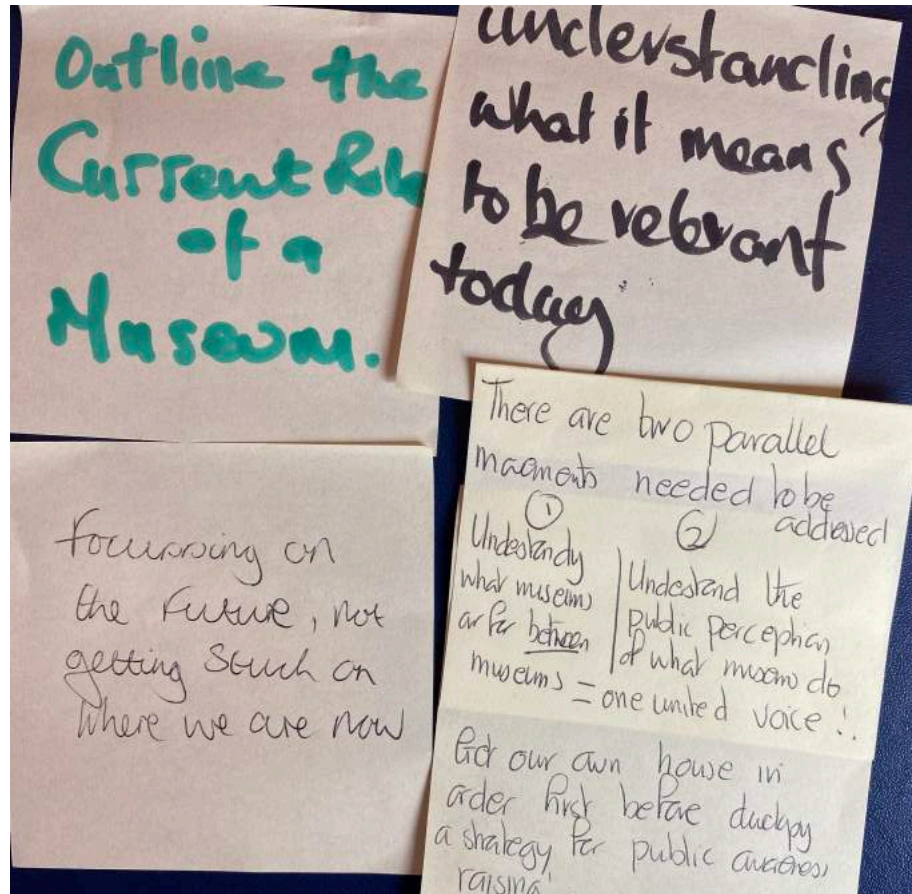 Outline the
Current Role
of a
Museum.
understanding
what it means
to be relevant
today
Focussing on
the Future, not
getting Stuck on
where we are now
There are two parallel
needed to be
addressed
① ②
Understandy
what museums
are for between
museums
Understand the
public perception
of what museums do
= one united voice!
Get our own house in
order first before
a strategy for public awareness
raising